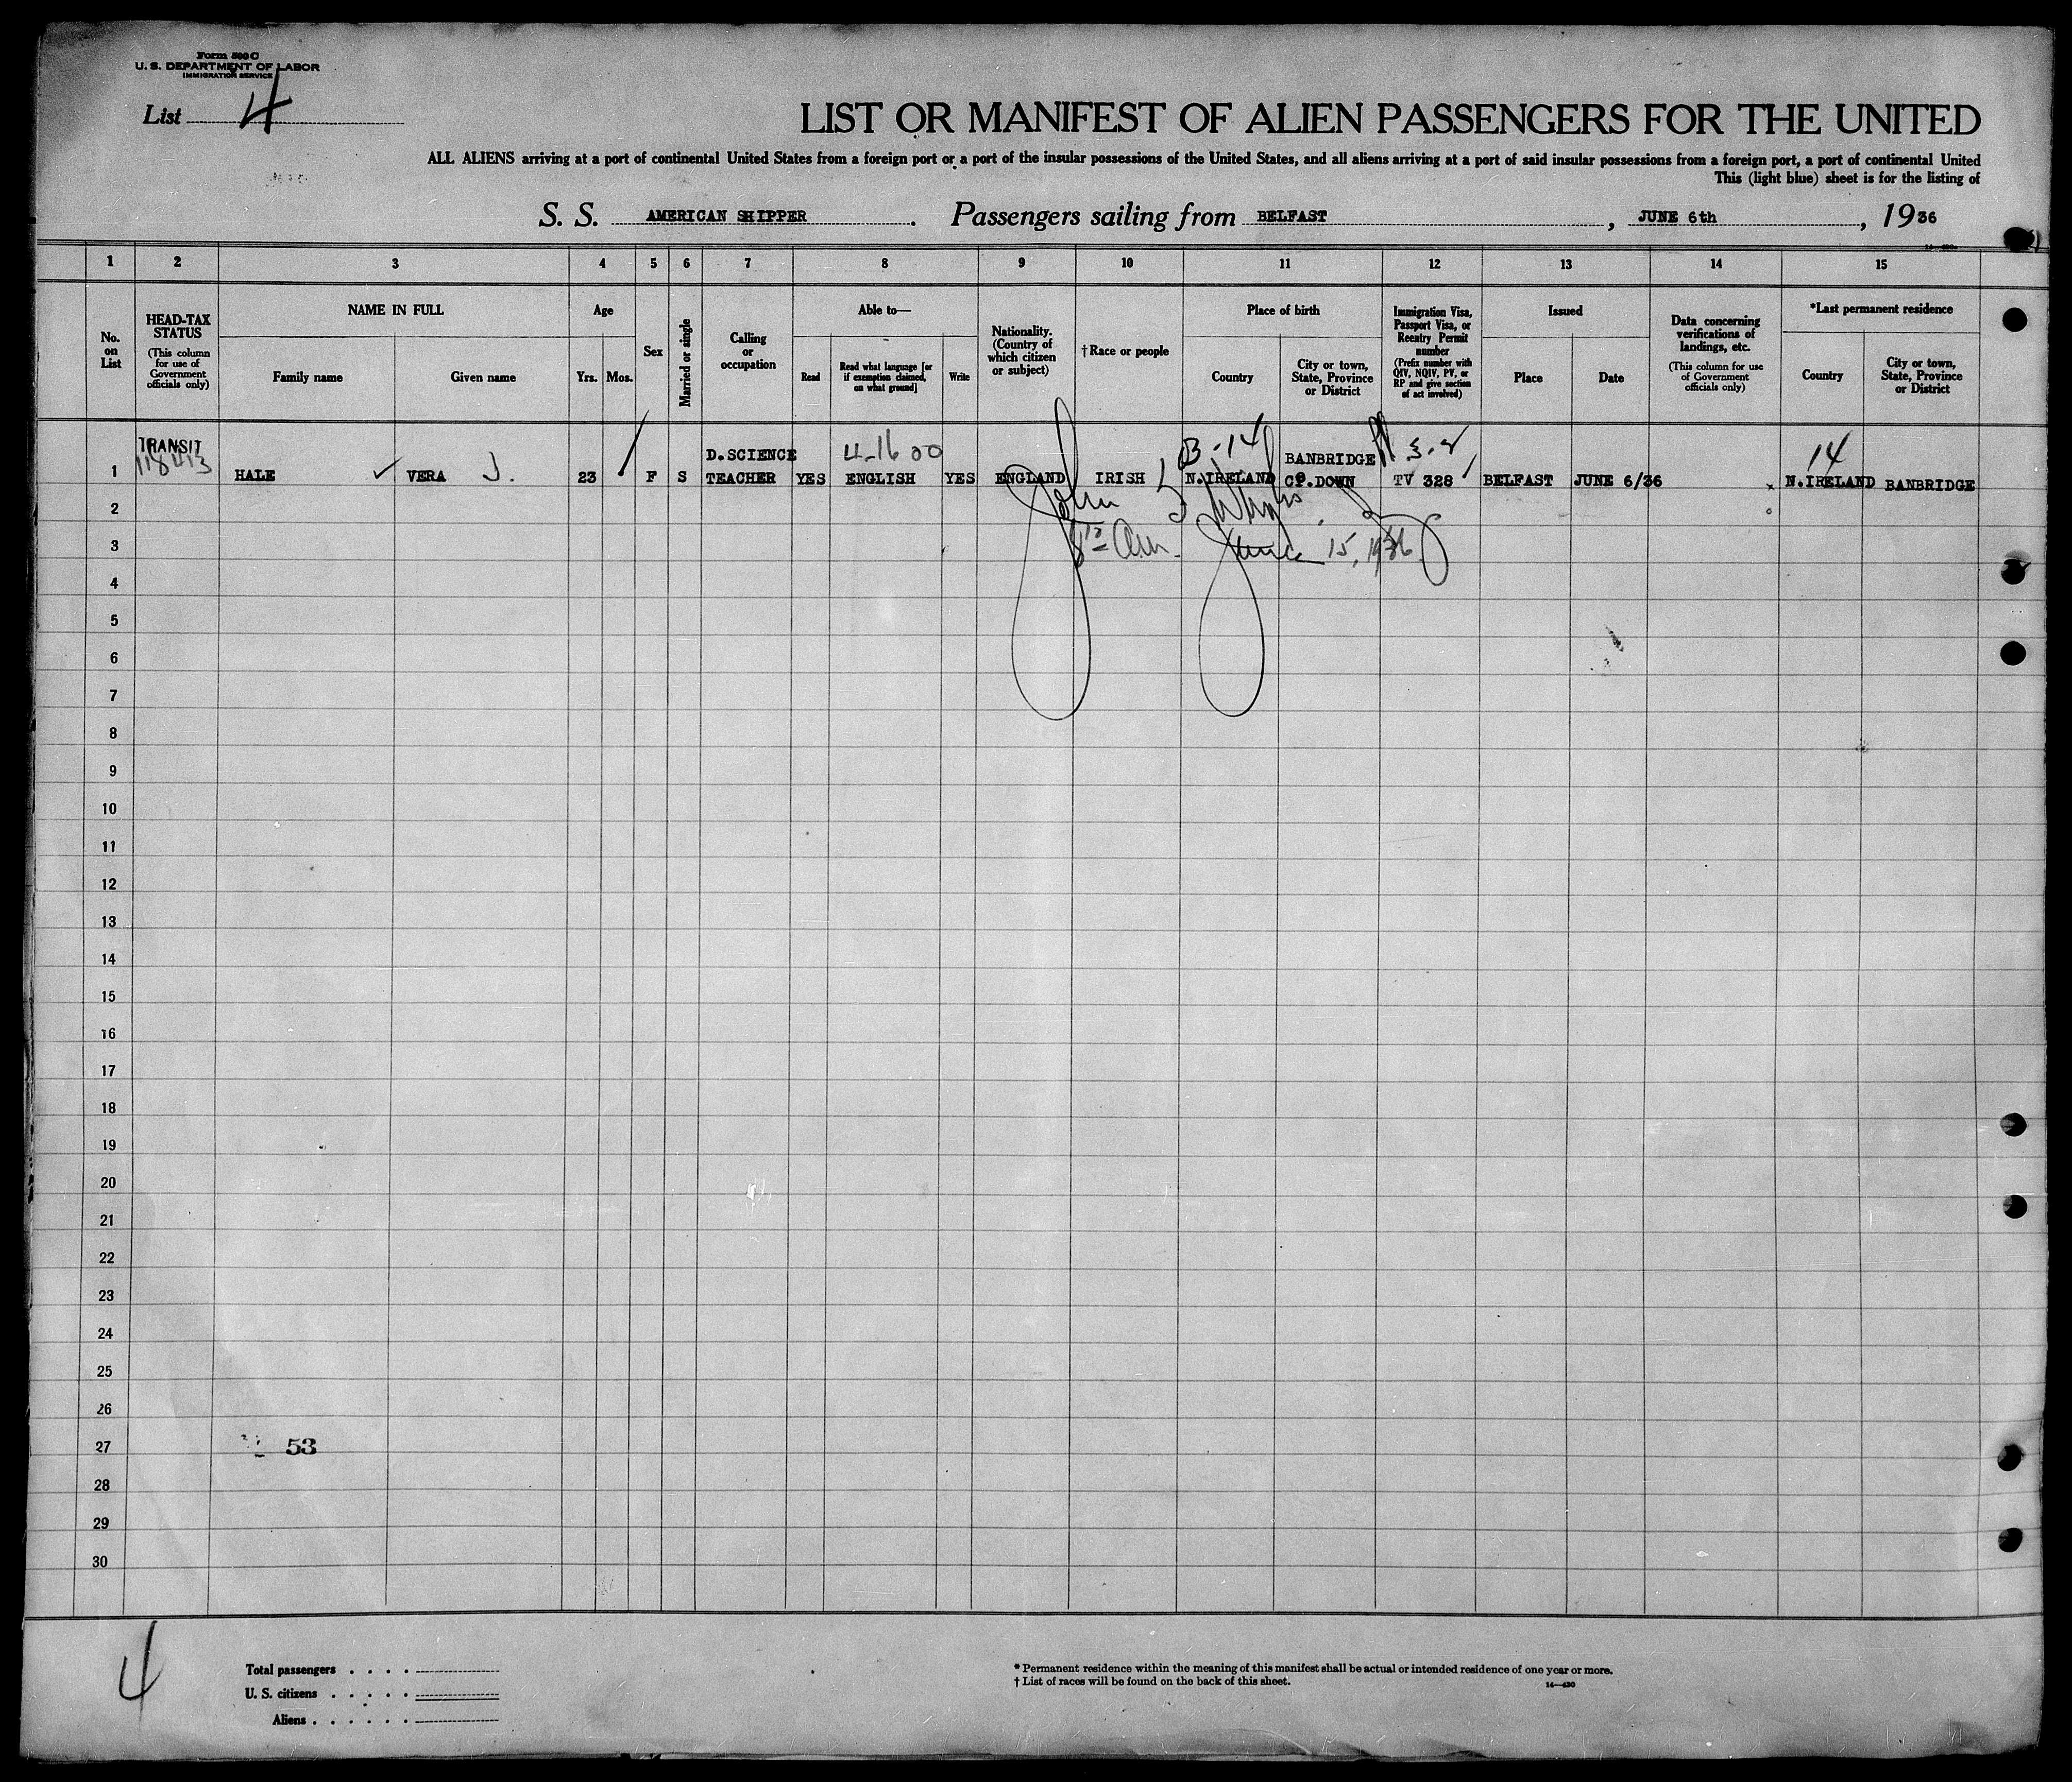 Form 500 C
U. S. DEPARTMENT OF LABOR
IMMIGRATION SERVICE
List 4
LIST OR MANIFEST OF ALIEN PASSENGERS FOR THE UNITED
ALL ALIENS arriving at a port of continental United States from a foreign port or a port of the insular possessions of the United States, and all aliens arriving at a port of said insular possessions from a foreign port, a port of continental United
This (light blue) sheet is for the listing of
S. S. AMERICAN SHIPPER. Passengers sailing from BELFAST, JUNE 6th, 1936
1 2 3 4 5 6 7 8 9 10 11 12 13 14 15
No. on List
HEAD-TAX STATUS (This column for use of Government officials only)
NAME IN FULL
Family name
Given name
Age
Yrs. Mos.
Sex
Married or single
Calling or occupation
Able to—
Read
Read what language [or if exemption claimed, on what ground]
Write
Nationality. (Country of which citizen or subject)
†Race or people
Place of birth
Country
City or town, State, Province or District
Immigration Visa, Passport Visa, or Reentry Permit number (Prefix number with QIV, NQIV, PV, or RP and give section of act involved)
Issued
Place
Date
Data concerning verifications of landings, etc. (This column for use of Government officials only)
*Last permanent residence
Country
City or town, State, Province or District
TRANSIT D. SCIENCE 4-16 00 B-14 BANBRIDGE 3-2 14
1 HALE ✓ VERA J. 23 F S TEACHER YES ENGLISH YES ENGLAND IRISH N.IRELAND CO.DOWN TV 328 BELFAST JUNE 6/36 N.IRELAND BANBRIDGE
2 John
3 June 15, 1936
4
5
6
7
8
9
10
11
12
13
14
15
16
17
18
19
20
21
22
23
24
25
26
27 53
28
29
30
4
Total passengers . . . .
U. S. citizens . . . . .
Aliens . . . . . .
* Permanent residence within the meaning of this manifest shall be actual or intended residence of one year or more.
† List of races will be found on the back of this sheet.
14—430